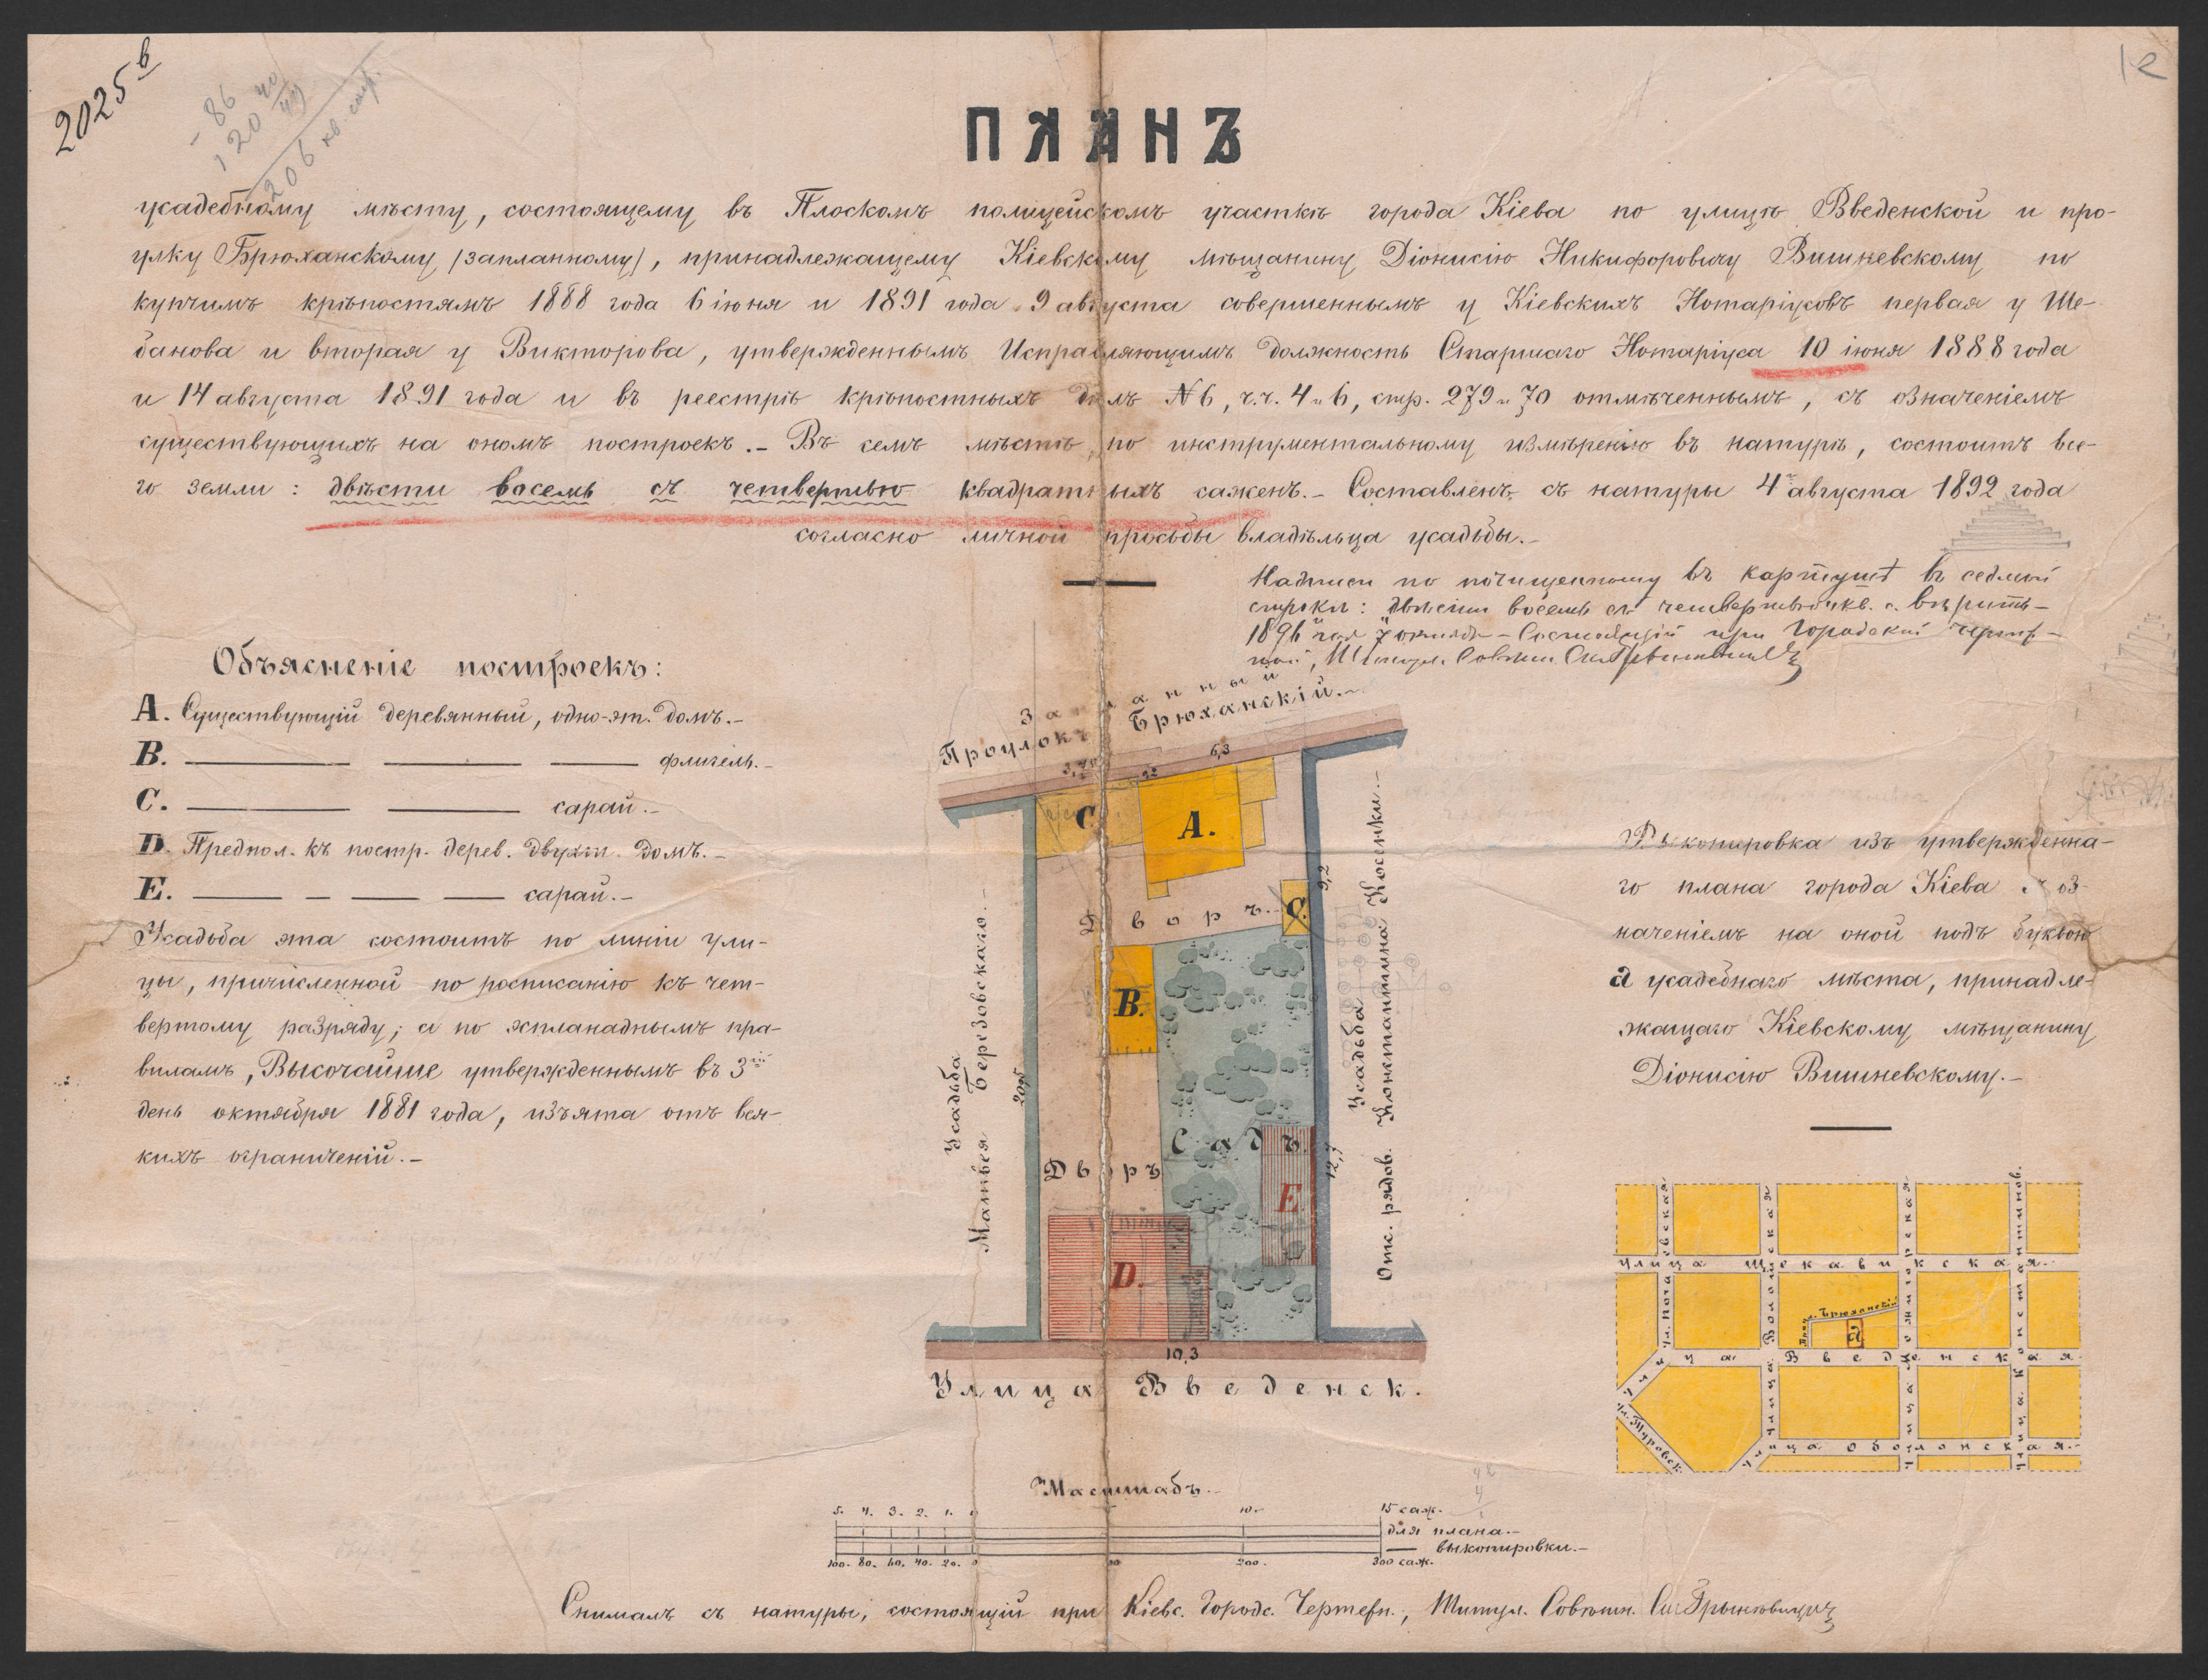 2025 в
12
- 86
120 40/49
206 кв. саж.
ПЛАНЪ
усадебному мѣсту, состоящему въ Плоскомъ полицейскомъ участкѣ города Кіева по улицѣ Введенской и про-
улку Брюханскому /запланному/, принадлежащему Кіевскому мѣщанину Діонисію Никифоровичу Вишневскому по
купчимъ крѣпостямъ 1888 года 6 іюня и 1891 года 9 августа совершеннымъ у Кіевскихъ Нотаріусовъ первая у Ше-
банова и вторая у Викторова, утвержденнымъ Исправляющимъ должность Старшаго Нотаріуса 10 іюня 1888 года
и 14 августа 1891 года и въ реестрѣ крѣпостныхъ дѣлъ № 6, ч.ч. 4 и 6, стр. 279 и 70 отмѣченнымъ, съ означеніемъ
существующихъ на ономъ построекъ.- Въ семъ мѣстѣ, по инструментальному измѣренію въ натурѣ, состоитъ все-
го земли: двѣсти восемь съ четвертью квадратныхъ сажень.- Составленъ съ натуры 4 августа 1892 года
согласно личной просьбы владѣльца усадьбы.-
Надписи по почищенному въ картушѣ въ седьмой
строкѣ: двѣсти восемь съ четвертью кв. с. вѣрить-
1896 года 7 октября - Состоящій при Городской чертеж-
ной, Титул. Совѣтн.
Объясненіе построекъ:
А. Существующій деревянный, одно-эт. домъ.-
В. флигель.-
С. сарай.-
D. Предпол. къ постр. дерев. двухэт. домъ.-
Е. сарай.-
Усадьба эта состоитъ по линіи ули-
цы, причисленной по росписанію къ чет-
вертому разряду; а по эспланаднымъ пра-
виламъ, Высочайше утвержденнымъ въ 3й
день октября 1881 года, изъята отъ вся-
кихъ ограниченій.-
Запланный
Проулокъ Брюханскій.-
6,3
2,2
С
А.
9,2
Дворъ.
С.
В.
Усадьба
Матвѣя Березовскаго.-
20,5
Усадьба
Отс. рядов. Константина Косенки.-
Садъ.
12,7
Дворъ
Е
D.
10,3
Улица Введенск.
Выкопировка изъ утвержденна-
го плана города Кіева съ оз-
наченіемъ на оной подъ буквою
а усадебнаго мѣста, принадле-
жащаго Кіевскому мѣщанину
Діонисію Вишневскому.-
Улица Щекавикская.-
ул. Почаевская
Улица Волошская
Улица Межигорская
Улица Константинов.
Проул. Брюханскій
а
Улица Введенская
ул. Туровск.
Улица Оболонская.-
Масштабъ.-
5. 4. 3. 2. 1. 0 10.- 15 саж.
для плана.-
выкопировки.-
100. 80. 60. 40. 20. 0 200. 300 саж.
Снималъ съ натуры, состоящій при Кіевс. Городс. Чертежн., Титул. Совѣтн.